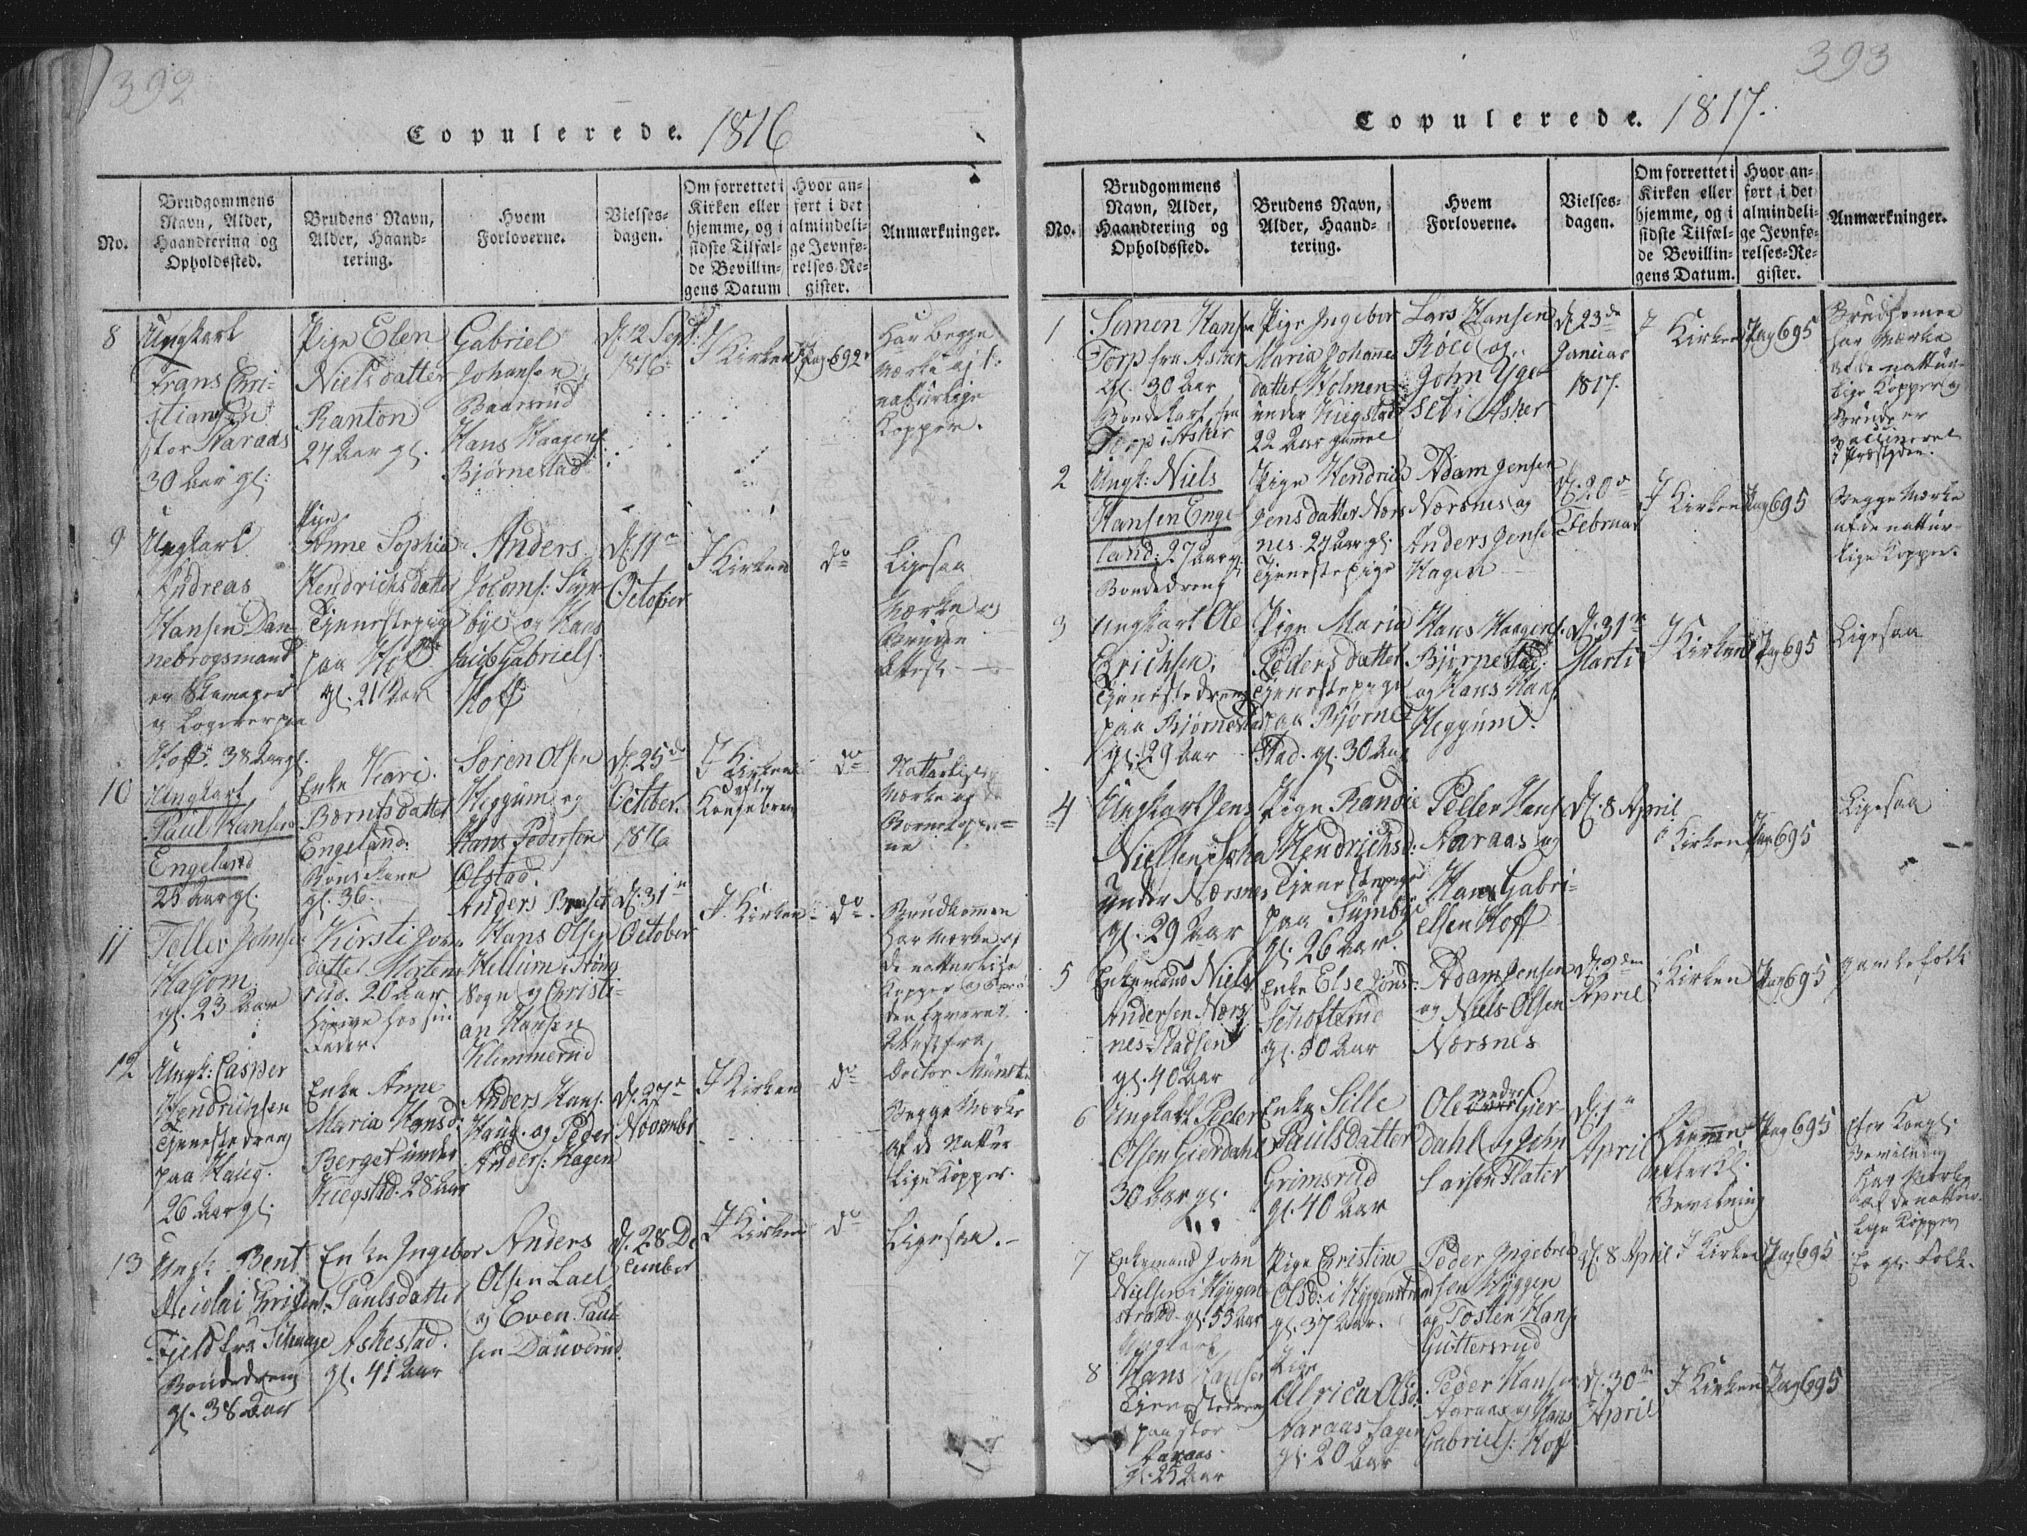 392
Copulerede. 1816
No.
Brudgommens
Navn, Alder,
Haandtering og
Opholdssted.
Brudens Navn,
Alder, Haand-
tering.
Hvem
Forloverne.
Vielses-
dagen.
Om forrettet i
Kirken eller
hjemme, og i
sidste Tilfæl-
de Bevillin-
gens Datum
Hvor an-
ført i det
almindeli-
ge Jevnfø-
relses-Re-
gister.
Anmærkninger.
8
Ungkarl
Frans Chri-
stiansen
stor Aaraas
30 Aar gl:
Pige Elen
Nielsdatter
Ranton
24 Aar gl.
Gabriel
Johansen
Baarsrud
Hans Haagens.
Bjørnestad
d. 12 Sept:
1816.
I Kirken
Pag 692
Har begge
Mærke af
naturlige
Kopper.
9
Ungkarl
Andreas
Hansen Dan-
nebrogsmand
er Skomager
og Logerer paa
Hoff. 38 Aar gl.
Pige
Anne Sophia
Hendrichsdatter
Tjenestepige
paa
gl. 21 Aar
Anders
Jocoms:
bye og Hans
Gabriels.
Hoff
d. 11
October
I Kirken
do
Ligesaa
Mærke og
Attest
10
Ungkarl
Paul Hansen
Engeland
25 Aar gl.
Enke Kari
Bærntsdatter
Engeland.
gl. 36.
Søren Olsen
Heggum og
Hans Pedersen
Olstad.
d. 25d
October
1816
I Kirken
efter
Kongebrev
do
Natturlige
Mærke af
Børnekopper-
ne
11
Teller Johnsen
Hajom
gl. 23 Aar
Kirsti Jorn
datter Mortens
rud. 20 Aar
hjeme hos sin
Fader.
Anders
Hans Olsen
Hellum i
Sogn og Christi-
an Hansen
Klemmerud
d. 31
October
I Kirken
do
Brudkommen
har Mærke af
de natturlige
Kopper og
Attest fra
Doctor Munste
12
Ungk: Casper
Hendrichsen
Tjenestedreng
paa Haug.
26 Aar gl.
Enke Anne
Maria Hansd:
Berget under
Kiegstad. 28 Aar
Anders Hans:
Haug. og Peder
Anders: Hagen
d. 27
November
I Kirken
do
Begge Mærke
af de Nattur
lige Kopper.
13
Ungk: Bent
Nicolai
Fjeld fra
Bondedreng
gl. 38 Aar
Enke Ingebor
Paulsdatter
Askestad.
gl. 41 Aar
Anders
Olsen Lael
og Even Paul
sen Dauverud.
d. 28 De
cember
I Kirken
do
Ligesaa.
393
Copulerede. 1817.
No.
Brudgommens
Navn, Alder,
Haandtering og
Opholdssted.
Brudens Navn,
Alder, Haand-
tering.
Hvem
Forloverne.
Vielses-
dagen.
Om forrettet i
Kirken eller
hjemme, og i
sidste Tilfæl-
de Bevillin-
gens Datum.
Hvor an-
ført i det
almindeli-
ge Jevnfø-
relses-Re-
gister.
Anmærkninger.
1
Simen Hansen
Torp fra Asker
gl. 30 Aar
Bondekarl fra
Torp i Asker
Pige Ingebor
Maria Johanne
datter Holmen
under Kiegstad
22 Aar gammel
Lars Hansen
og
John
i Asker
d. 23de
Januar
1817.
I Kirken
Pag 695
har Mærke
af de nattur-
lige Kopper og
Brude er
Vaccineret
2
Ungk: Niels
Hansen Enge-
land: 27 Aar gl
Bondedreng
Pige Hendrich
Jensdatter Nærs
nes. 24 Aar gl.
Tjenestepige
Adam Jensen
Nærsnes og
Anders Jensen
Hagen
d. 20
Februar
I Kirken
Pag 695
Begge Mærke
af de nattur-
lige Kopper.
3
Ungkarl Ole
Erichsen,
Tjenestedreng
paa Bjørnestad
gl. 29 Aar
Pige Maria
Pedersdatter
Tjenestepige
paa Bjørne
stad. gl. 30 Aar
Hans Haagens.
Bjørnestad.
og Hans Hans
Heggum.
d. 31
Marti
I Kirken
Pag 695
Ligesaa
4
Ungkarl Jens
Nielsen
under Nærsnes
gl. 29 Aar
Pige Randie
Hendrichsd:
Tjenestepige
paa Sumbye
gl. 26 Aar.
Peder Hans
Aaraas og
Hans Gabri-
elsen Hoff
d. 8 April
Kirken
Pag 695
Ligesaa
5
Enkemand Niels
Andersen Nærs
nes-Pladsen
gl. 40 Aar
Enke Else
gl. 50 Aar
Adam Jensen
og Niels Olsen
Nærsnes
d. 9den
April
i Kirken
Pag 695
gamle folk
6
Ungkarl Peder
Olsen Gierdahl
30 Aar gl.
Enke Sille
Paulsdatter
Grimsrud
gl. 40 Aar
Ole nedre Gier-
dahl og John
Larsen Slater
d. 1
April
Hjemme
efter Kl.
Bevilning
Pag 695
efter Kongl:
Bevilning
har Mærke
af de nattur-
lige Kopper
7
Enkemand Jorn
Nielsen i Hyggen
strand. gl. 55 Aar
Pige Christine
Olsd: i Hyggenstrand
gl. 37 Aar.
Peder Ingebret
sen Hyggen
og Tosten Hans
Guttersrud
d. 8 April
I Kirken
Pag 695
Er gl. Folk.
8
Ungkarl
Hans Hansen
Tjenestedreng
paa stor
Aaraas.
gl. 25 Aar
Pige
Alrica Olsd:
Aaraas
gl. 20 Aar
Peder Hansen
Aaraas og Hans
Gabriels: Hoff
d. 30
April
I Kirken
Pag 695